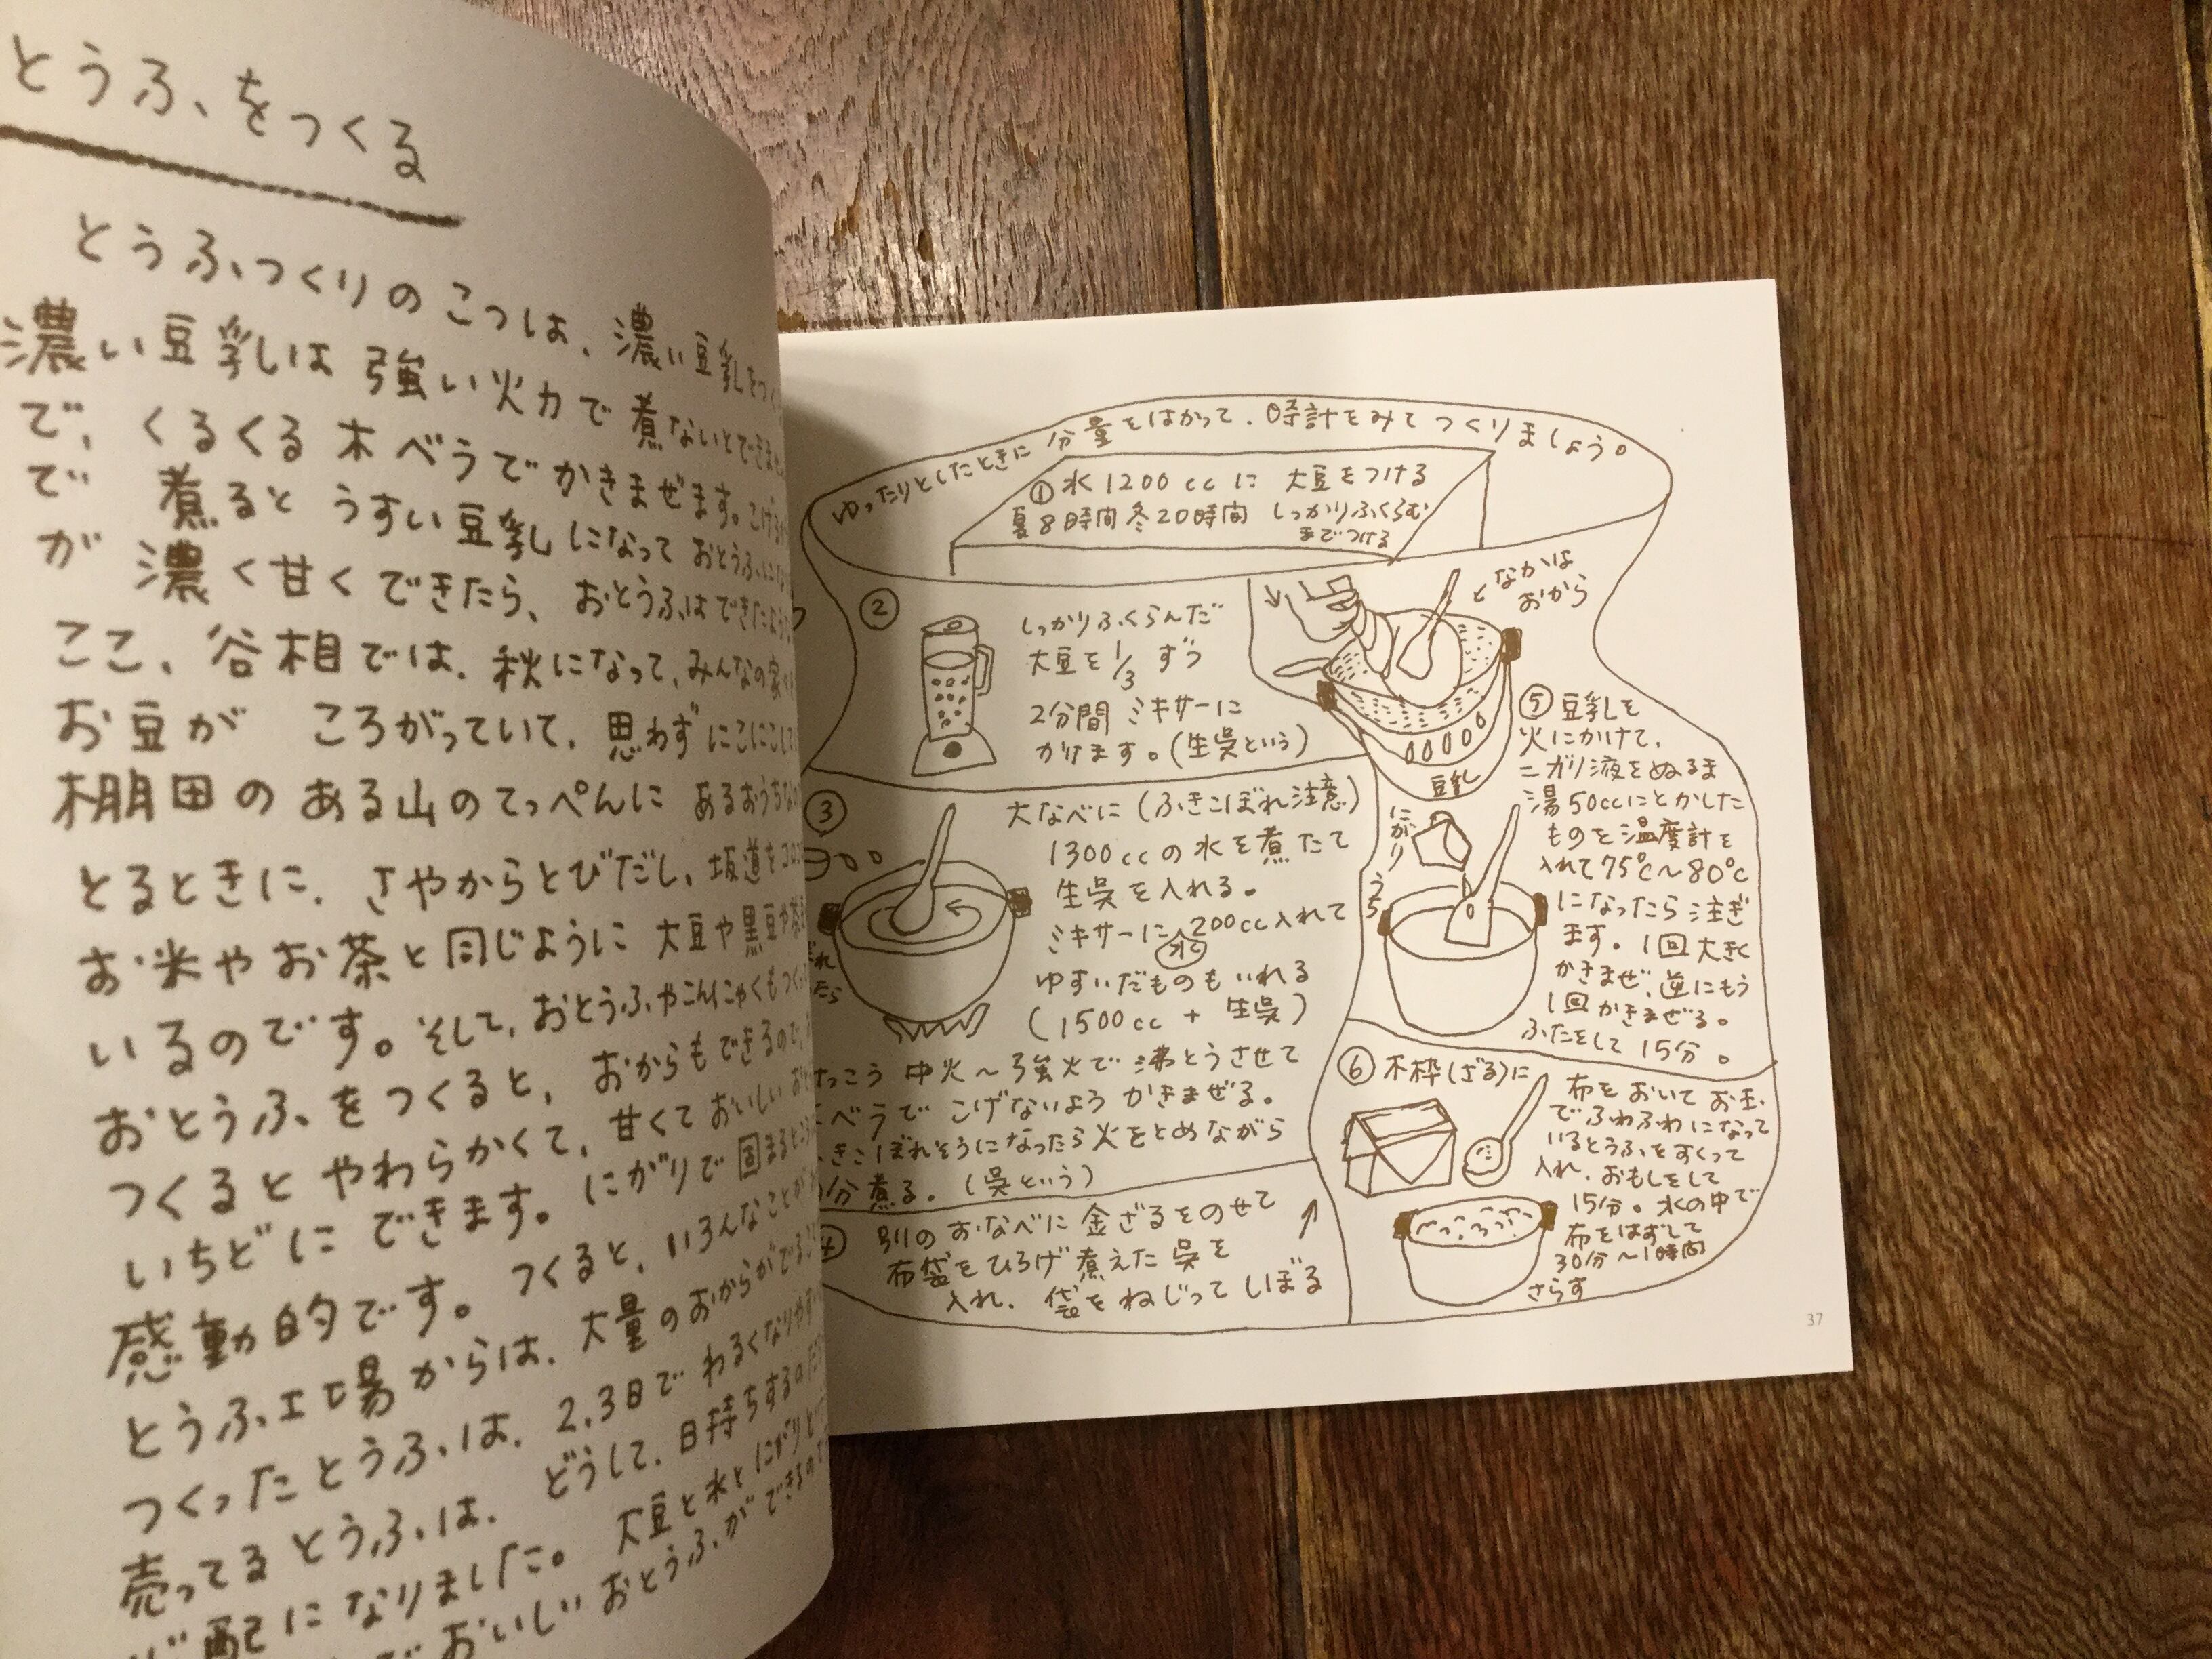 とうふをつくる
とうふつくりのこつは、濃い豆乳をつく
濃い豆乳は強い火力で煮ないとできませ
で、くるくる木べラでかきまぜます。こげ
で 煮るとうすい豆乳になっておとうふにな
が 濃く甘くできたら、おとうふはできたよう
ここ、谷相では、秋になって、みんなの家
お豆が ころがっていて、思わずにこにこして
棚田のある山のてっぺんに あるおうちな
とるときに、さやからとびだし、坂道をコロ
お米やお茶と同じように 大豆や黒豆や茶
いるのです。そして、おとうふやこんにゃくもつく
おとうふをつくると、おからもできるので、
つくると やわらかくて、甘くて おいしい お
いちどに できます。にがりで固まると
感動的です。つくると、いろんなことが
とうふ工場からは、大量のおからがでる
つくったとうふは、2、3日で わるくなりやす
売ってるとうふは、どうして、日持ちするの
配になりました。大豆と水とにがりと
で おいしい おとうふができるの
ゆったりとしたときに 分量をはかって、時計をみてつくりましょう。
① 水1200ccに 大豆をつける
夏8時間冬20時間 しっかりふくらむ
までつける
②
しっかりふくらんだ
大豆を1/3ずつ
2分間 ミキサーに
かけます。(生呉という)
③
大なべに(ふきこぼれ注意)
1300ccの水を煮たて
生呉を入れる。
ミキサーに水200cc入れて
ゆすいだものもいれる
(1500cc + 生呉)
けっこう 中火〜強火で 沸とうさせて
べラで こげないよう かきまぜる。
きこぼれそうになったら火をとめながら
分煮る。(呉という)
④ 別のおなべに 金ざるをのせて
布袋をひろげ 煮えた呉を
入れ、袋をねじってしぼる
なかは
おから
豆乳
⑤ 豆乳を
火にかけて、
ニガリ液をぬるま
湯50ccにとかした
ものを温度計を
入れて75℃〜80℃
になったら注ぎ
ます。1回大きく
かきまぜ、逆にもう
1回かきまぜる。
ふたをして15分。
にがり
⑥ 木枠(ざる)に
布をおいて お玉
でふわふわになって
いるとうふをすくって
入れ、おもしをして
15分。水の中で
布をはずして
30分〜1時間
さらす
37